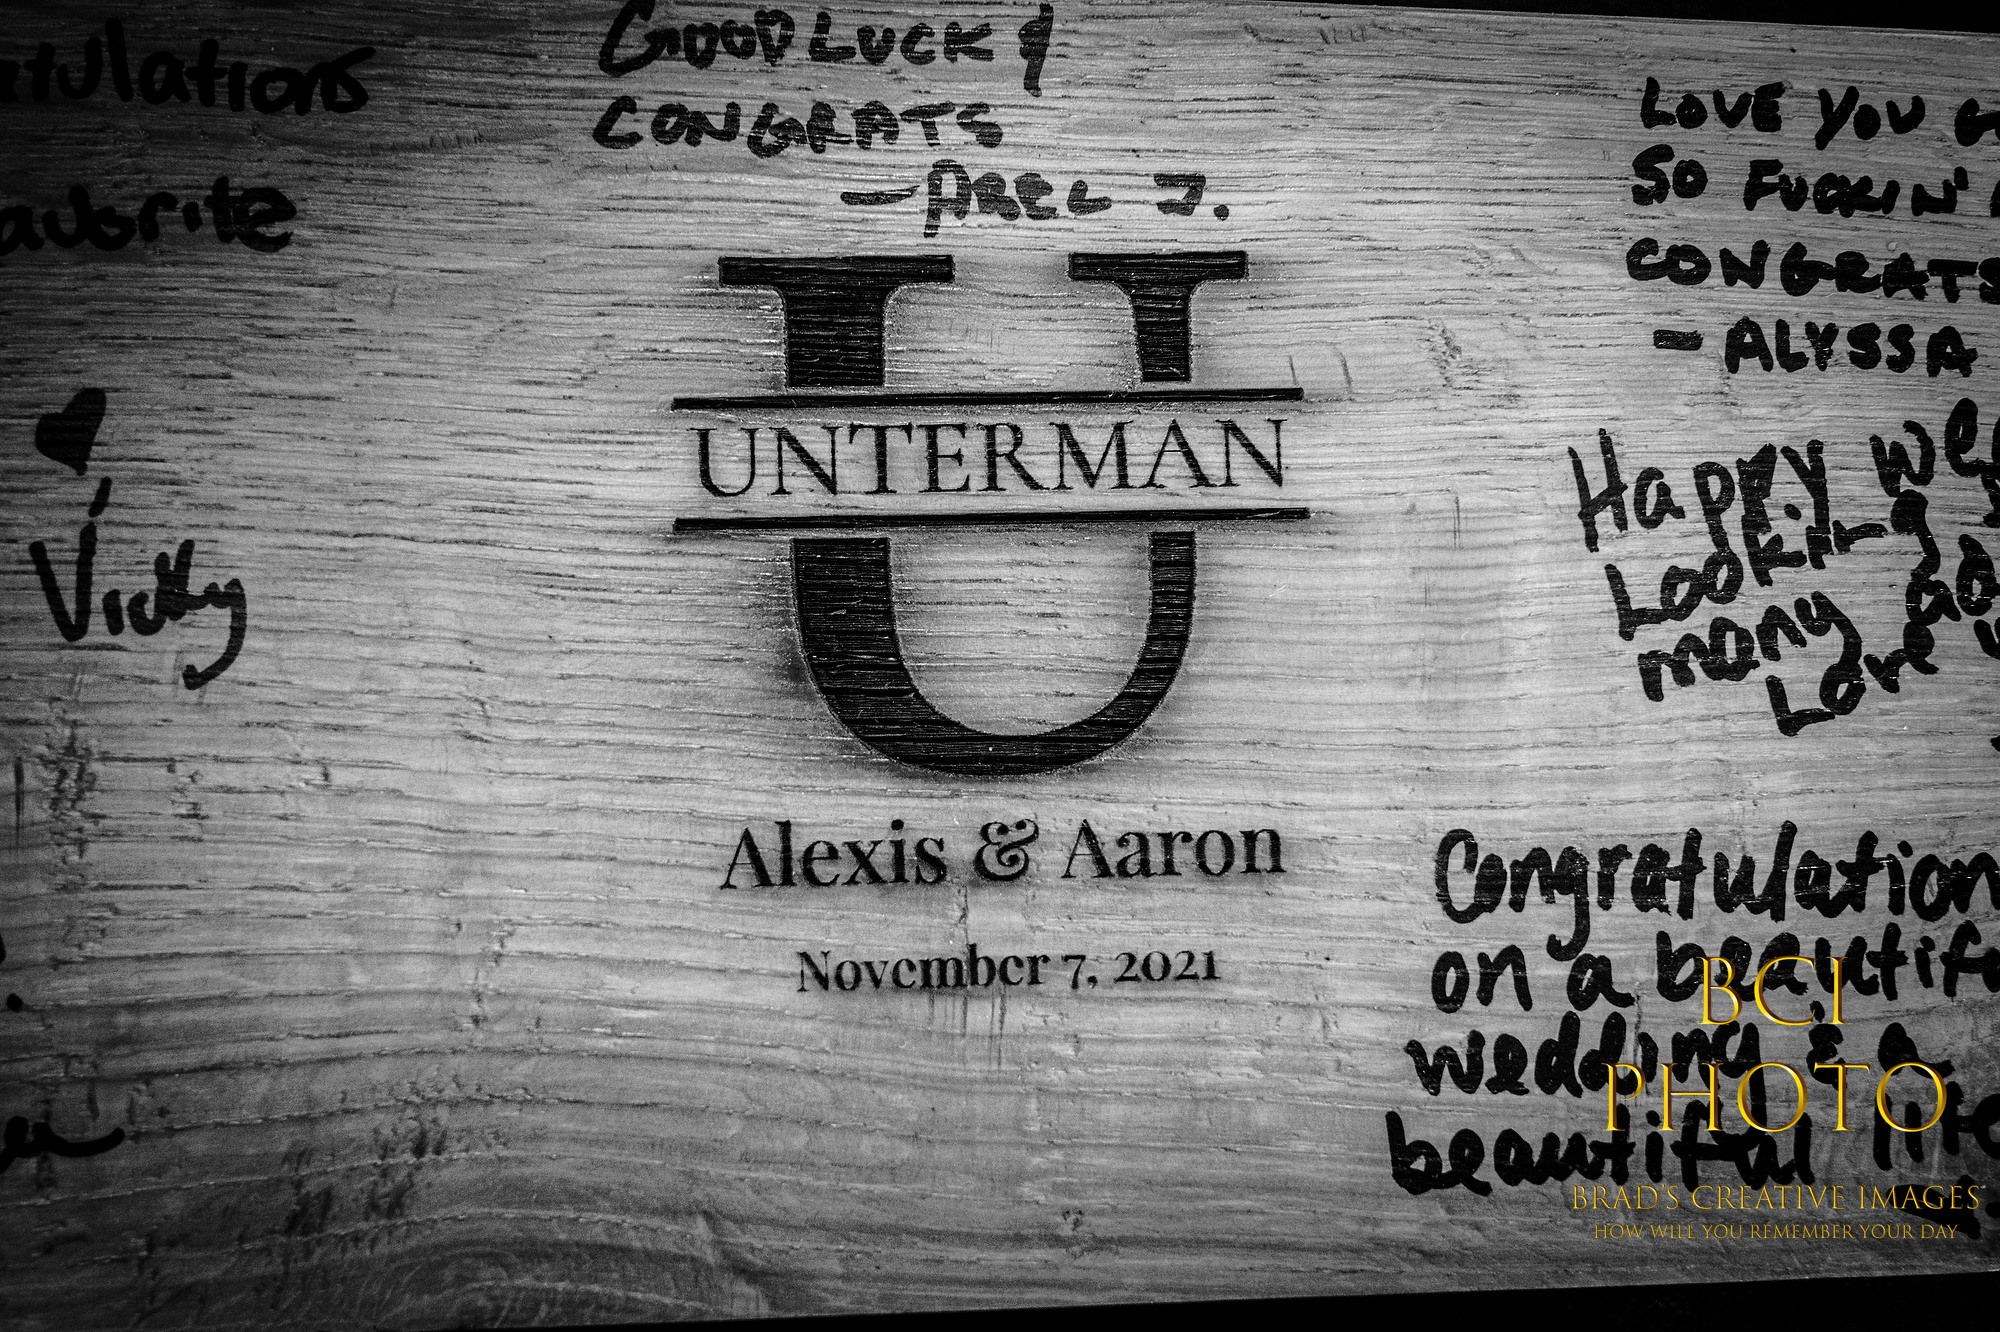 GOOD LUCK &
CONGRATS
—ABEL J.
avorite
Vicky
UNTERMAN
Alexis & Aaron
November 7, 2021
LOVE YOU
SO FUCKIN'
CONGRATS
- ALYSSA
Happy
Looking
many
Love
Congratulation
on a beautif
wedding & a
beautiful life
BCI
PHOTO
BRAD'S CREATIVE IMAGES
HOW WILL YOU REMEMBER YOUR DAY